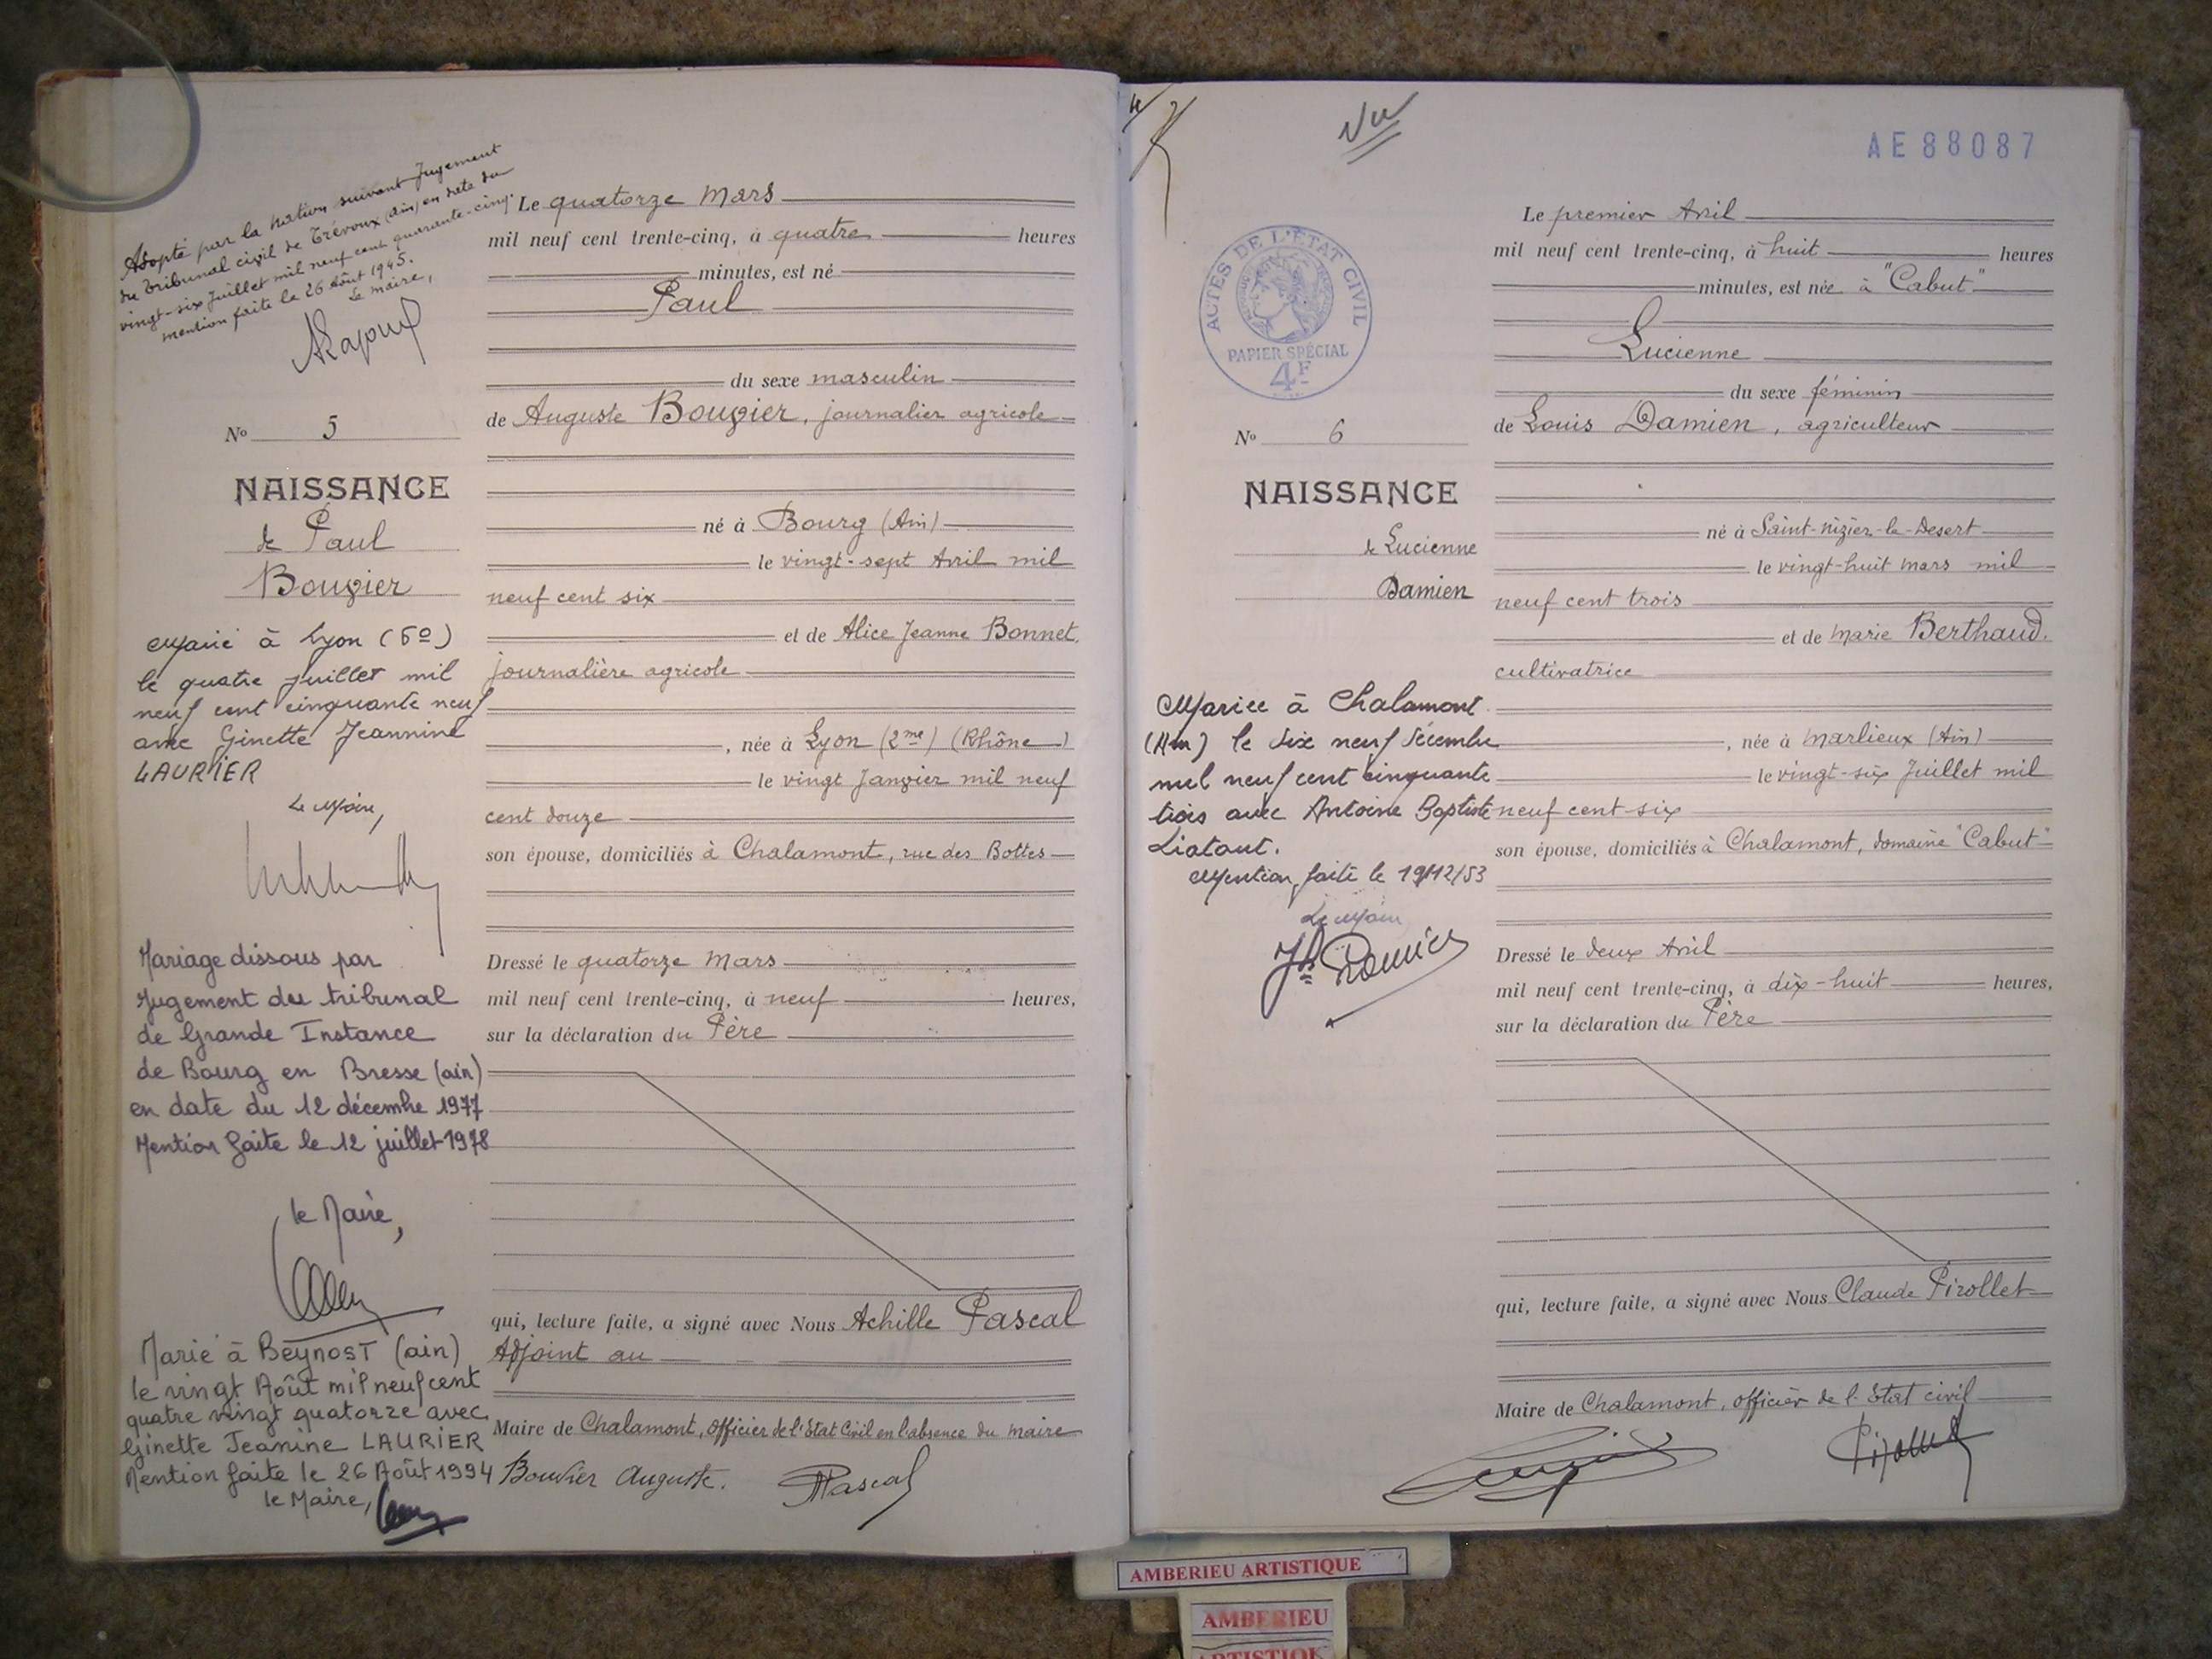 Adopté par la Nation suivant Jugement
du Tribunal civil de Trévoux (Ain) en date du
vingt-six Juillet mil neuf cent quarante-cinq.
mention faite le 26 Août 1945.
Le Maire,
No 5
NAISSANCE
de Paul
Bouvier
Marié à Lyon (6e)
le quatre juillet mil
neuf cent cinquante neuf
avec Ginette Jeannine
LAURIER
Le Maire,
Mariage dissous par
Jugement du tribunal
de Grande Instance
de Bourg en Bresse (ain)
en date du 12 décembre 1977
Mention faite le 12 juillet 1978
le Maire,
Marié à BEYNOST (ain)
le vingt Août mil neuf cent
quatre vingt quatorze avec
Ginette Jeanine LAURIER
Mention faite le 26 Août 1994
le Maire,
Le quatorze Mars
mil neuf cent trente-cinq, à quatre heures
minutes, est né
Paul
du sexe masculin
de Auguste Bouvier, journalier agricole
né à Bourg (Ain)
le vingt-sept Avril mil
neuf cent six
et de Alice Jeanne Bonnet,
journalière agricole
, née à Lyon (2me) (Rhône)
le vingt Janvier mil neuf
cent douze
son épouse, domiciliés à Chalamont, rue des Bottes
Dressé le quatorze Mars
mil neuf cent trente-cinq, à neuf heures,
sur la déclaration du Père
qui, lecture faite, a signé avec Nous Achille Pascal
Adjoint au
Maire de Chalamont, officier de l'Etat Civil en l'absence du maire
Bouvier Auguste. APascal
4
Vu
AE 88087
ACTES DE L'ÉTAT CIVIL
PAPIER SPÉCIAL
4F
No 6
NAISSANCE
de Lucienne
Damien
Mariée à Chalamont
(Ain) le dix neuf décembre
mil neuf cent cinquante
trois avec Antoine Baptiste
Liatout.
Mention faite le 19/12/53
Le Maire
Le premier Avril
mil neuf cent trente-cinq, à huit heures
minutes, est née à "Cabut"
Lucienne
du sexe féminin
de Louis Damien, agriculteur
né à Saint-Nizier-le-Desert
le vingt-huit Mars mil
neuf cent trois
et de Marie Berthaud.
cultivatrice
, née à Marlieux (Ain)
le vingt-six Juillet mil
neuf cent six
son épouse, domiciliés à Chalamont, domaine "Cabut"
Dressé le deux Avril
mil neuf cent trente-cinq, à dix-huit heures,
sur la déclaration du Père
qui, lecture faite, a signé avec Nous Claude Pirollet
Maire de Chalamont, officier de l'Etat civil
AMBERIEU ARTISTIQUE
AMBERIEU
ARTISTIQUE